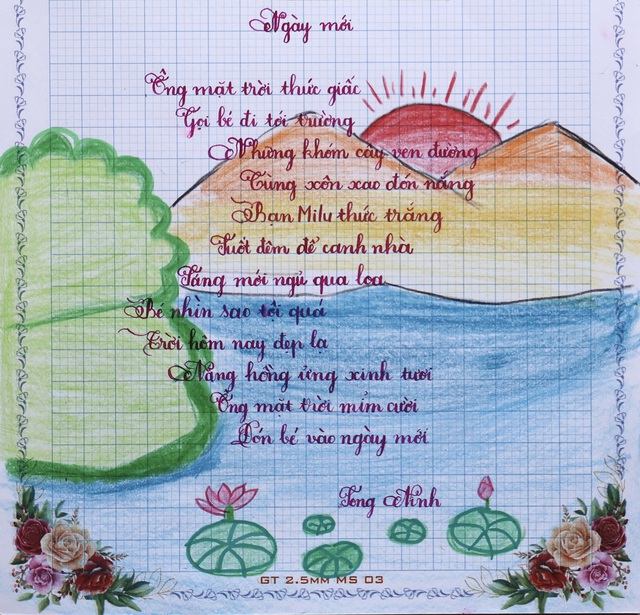 Ngày mới
Ông mặt trời thức giấc
Gọi bé đi tới trường
Những khóm cây ven đường
Cùng xôn xao đón nắng
Bạn Milu thức trắng
Suốt đêm để canh nhà
Sáng mới ngủ qua loa
Bé nhìn sao tội quá
Trời hôm nay đẹp lạ
Nắng hồng ửng xinh tươi
Ông mặt trời mỉm cười
Đón bé vào ngày mới
Tống Ninh
GT 2.5MM MS 03